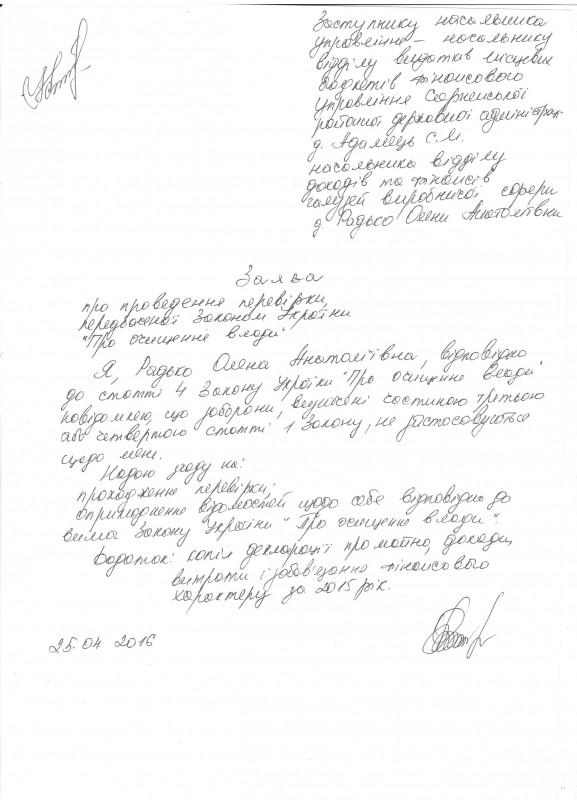 Заступнику начальника
управління – начальнику
відділу видатків місцевих
бюджетів фінансового
управління Сарненської
районної державної адміністрац
д. Адамець С.М.
начальника відділу
доходів та фінансів
галузей виробничої сфери
д. Радько Олени Анатоліївни
Заява
про проведення перевірки,
передбаченої Законом України
"Про очищення влади"
Я, Радько Олена Анатоліївна, відповідно
до статті 4 Закону України "Про очищення влади"
повідомляю, що заборони, визначені частиною третьою
або четвертою статті 1 Закону, не застосовуються
щодо мене.
Надаю згоду на:
проходження перевірки;
оприлюднення відомостей щодо себе відповідно до
вимог Закону України "Про очищення влади".
Додаток: копія декларації про майно, доходи,
витрати і зобов'язання фінансового
характеру за 2015 рік.
25.04 2016